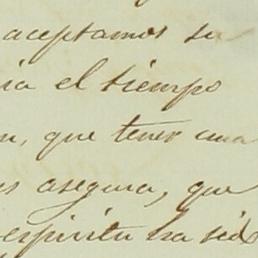 aceptamos su
ia el tiempo
n, que tener una
s asegura, que
espiritu ha sid